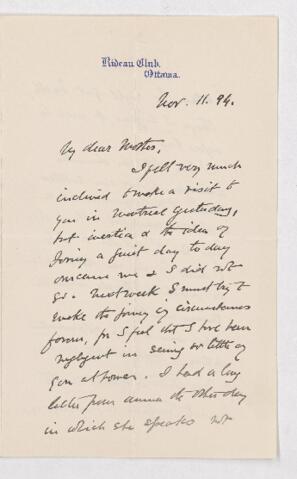 Rideau Club.
Ottawa.
Nov. 11. 94.
My dear Mother,
I felt very much
inclined to make a visit to
you in Montreal yesterday,
but inertia & the idea of
having a quiet day to day
overcame me & I did not
go. Next week I must try to
make the of circumstances
for I feel that I have been
negligent in seeing so little of
you at home. I had a long
letter from Anna the other day
in which she speaks not